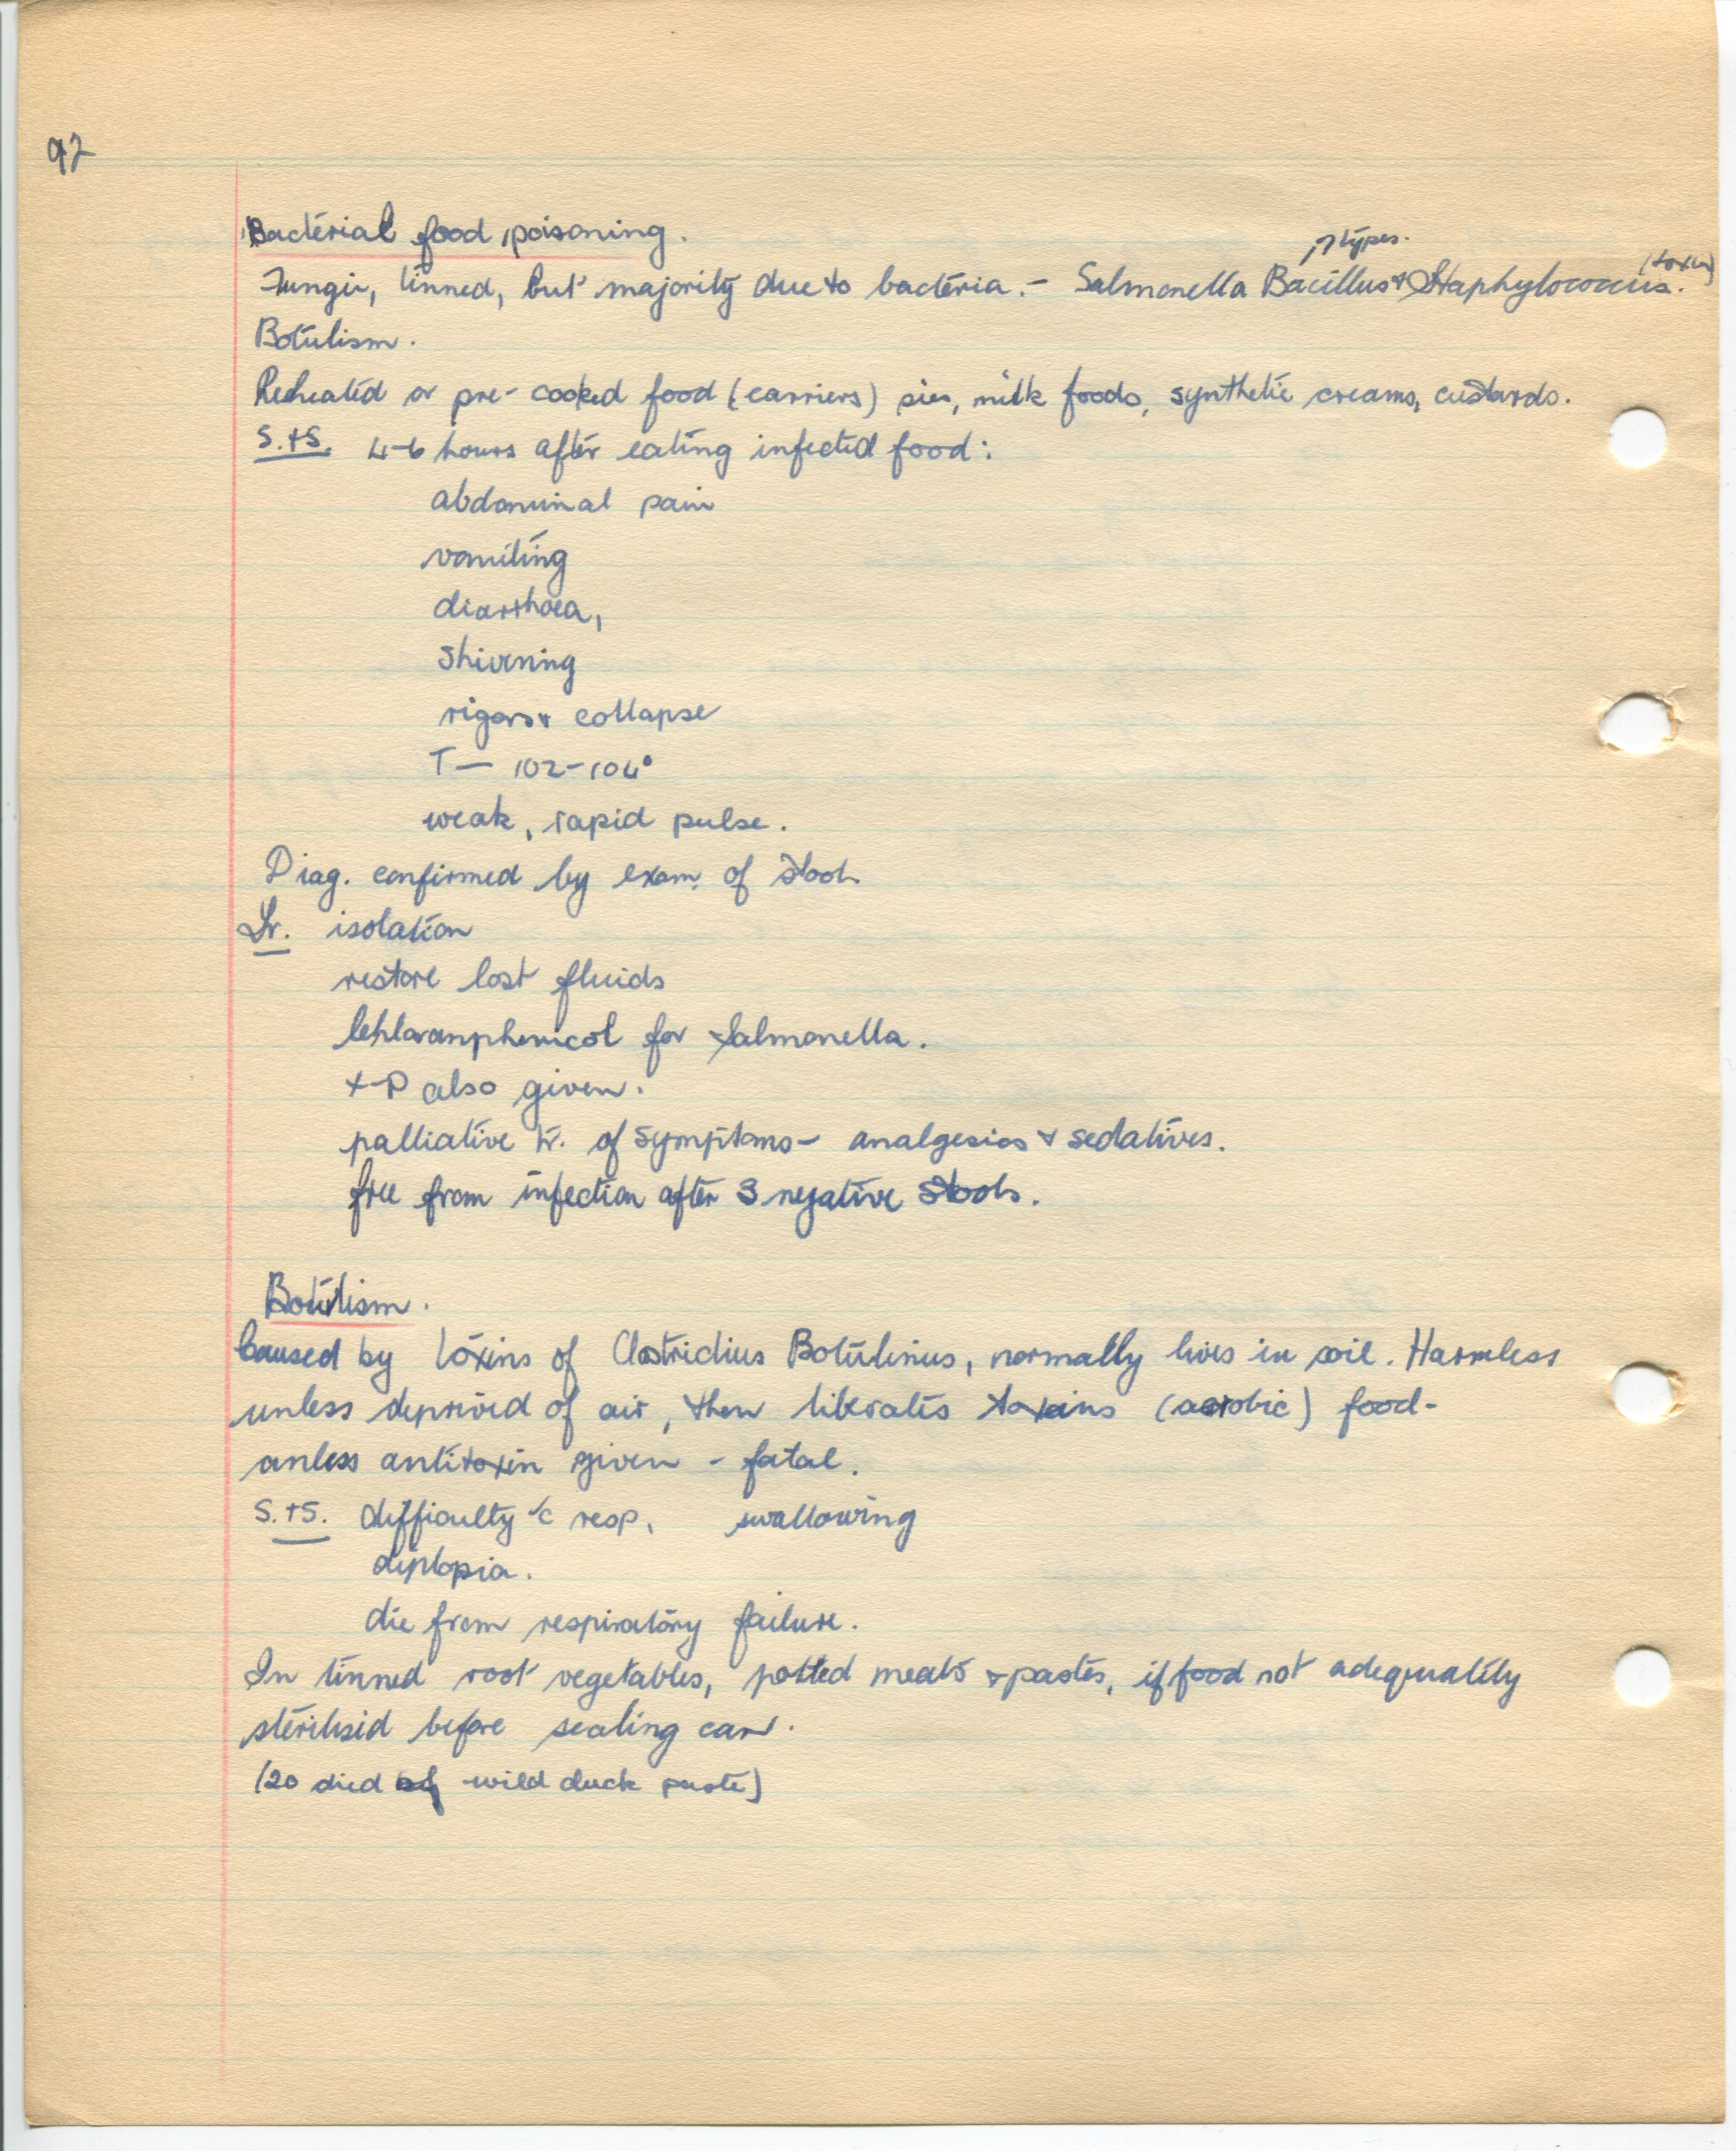 92
Bacterial food poisoning.
types.
(toxin)
Fungii, tinned, but majority due to bacteria. - Salmonella Bacillus & Staphylococcus.
Botulism.
Reheated or pre-cooked food (carriers) pies, milk foods, synthetic creams, custards.
S.+S. 4-6 hours after eating infected food:
abdominal pain
vomiting
diarrhoea,
shivering
rigors & collapse
T — 102-104°
weak, rapid pulse.
Diag. confirmed by exam. of stools
Tr. isolation
restore lost fluids
Chloramphenicol for Salmonella.
also given.
palliative tr. of symptoms - analgesics & sedatives.
free from infection after 3 negative stools.
Botulism.
Caused by toxins of Clostridius Botulinus, normally lives in soil. Harmless
unless deprived of air, then liberates toxins (aerobic) food-
unless antitoxin given - fatal.
S.+S. difficulty c̄ resp, swallowing
diplopia.
die from respiratory failure.
In tinned root vegetables, potted meats & pastes, if food not adequately
sterilised before sealing can.
(20 died of wild duck paste)